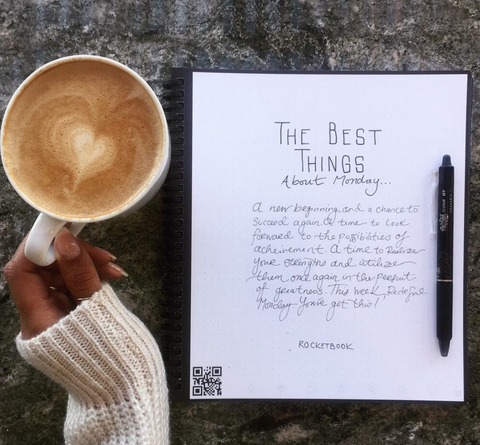 THE BEST
THINGS
About Monday...
A new beginning and a chance to
succeed again. A time to look
forward to the possibilities of
acheivement. A time to Realize
your strengths and utilize
them once again in the pursuit
of greatness. This week Redefine
Monday. You've got this!
ROCKETBOOK